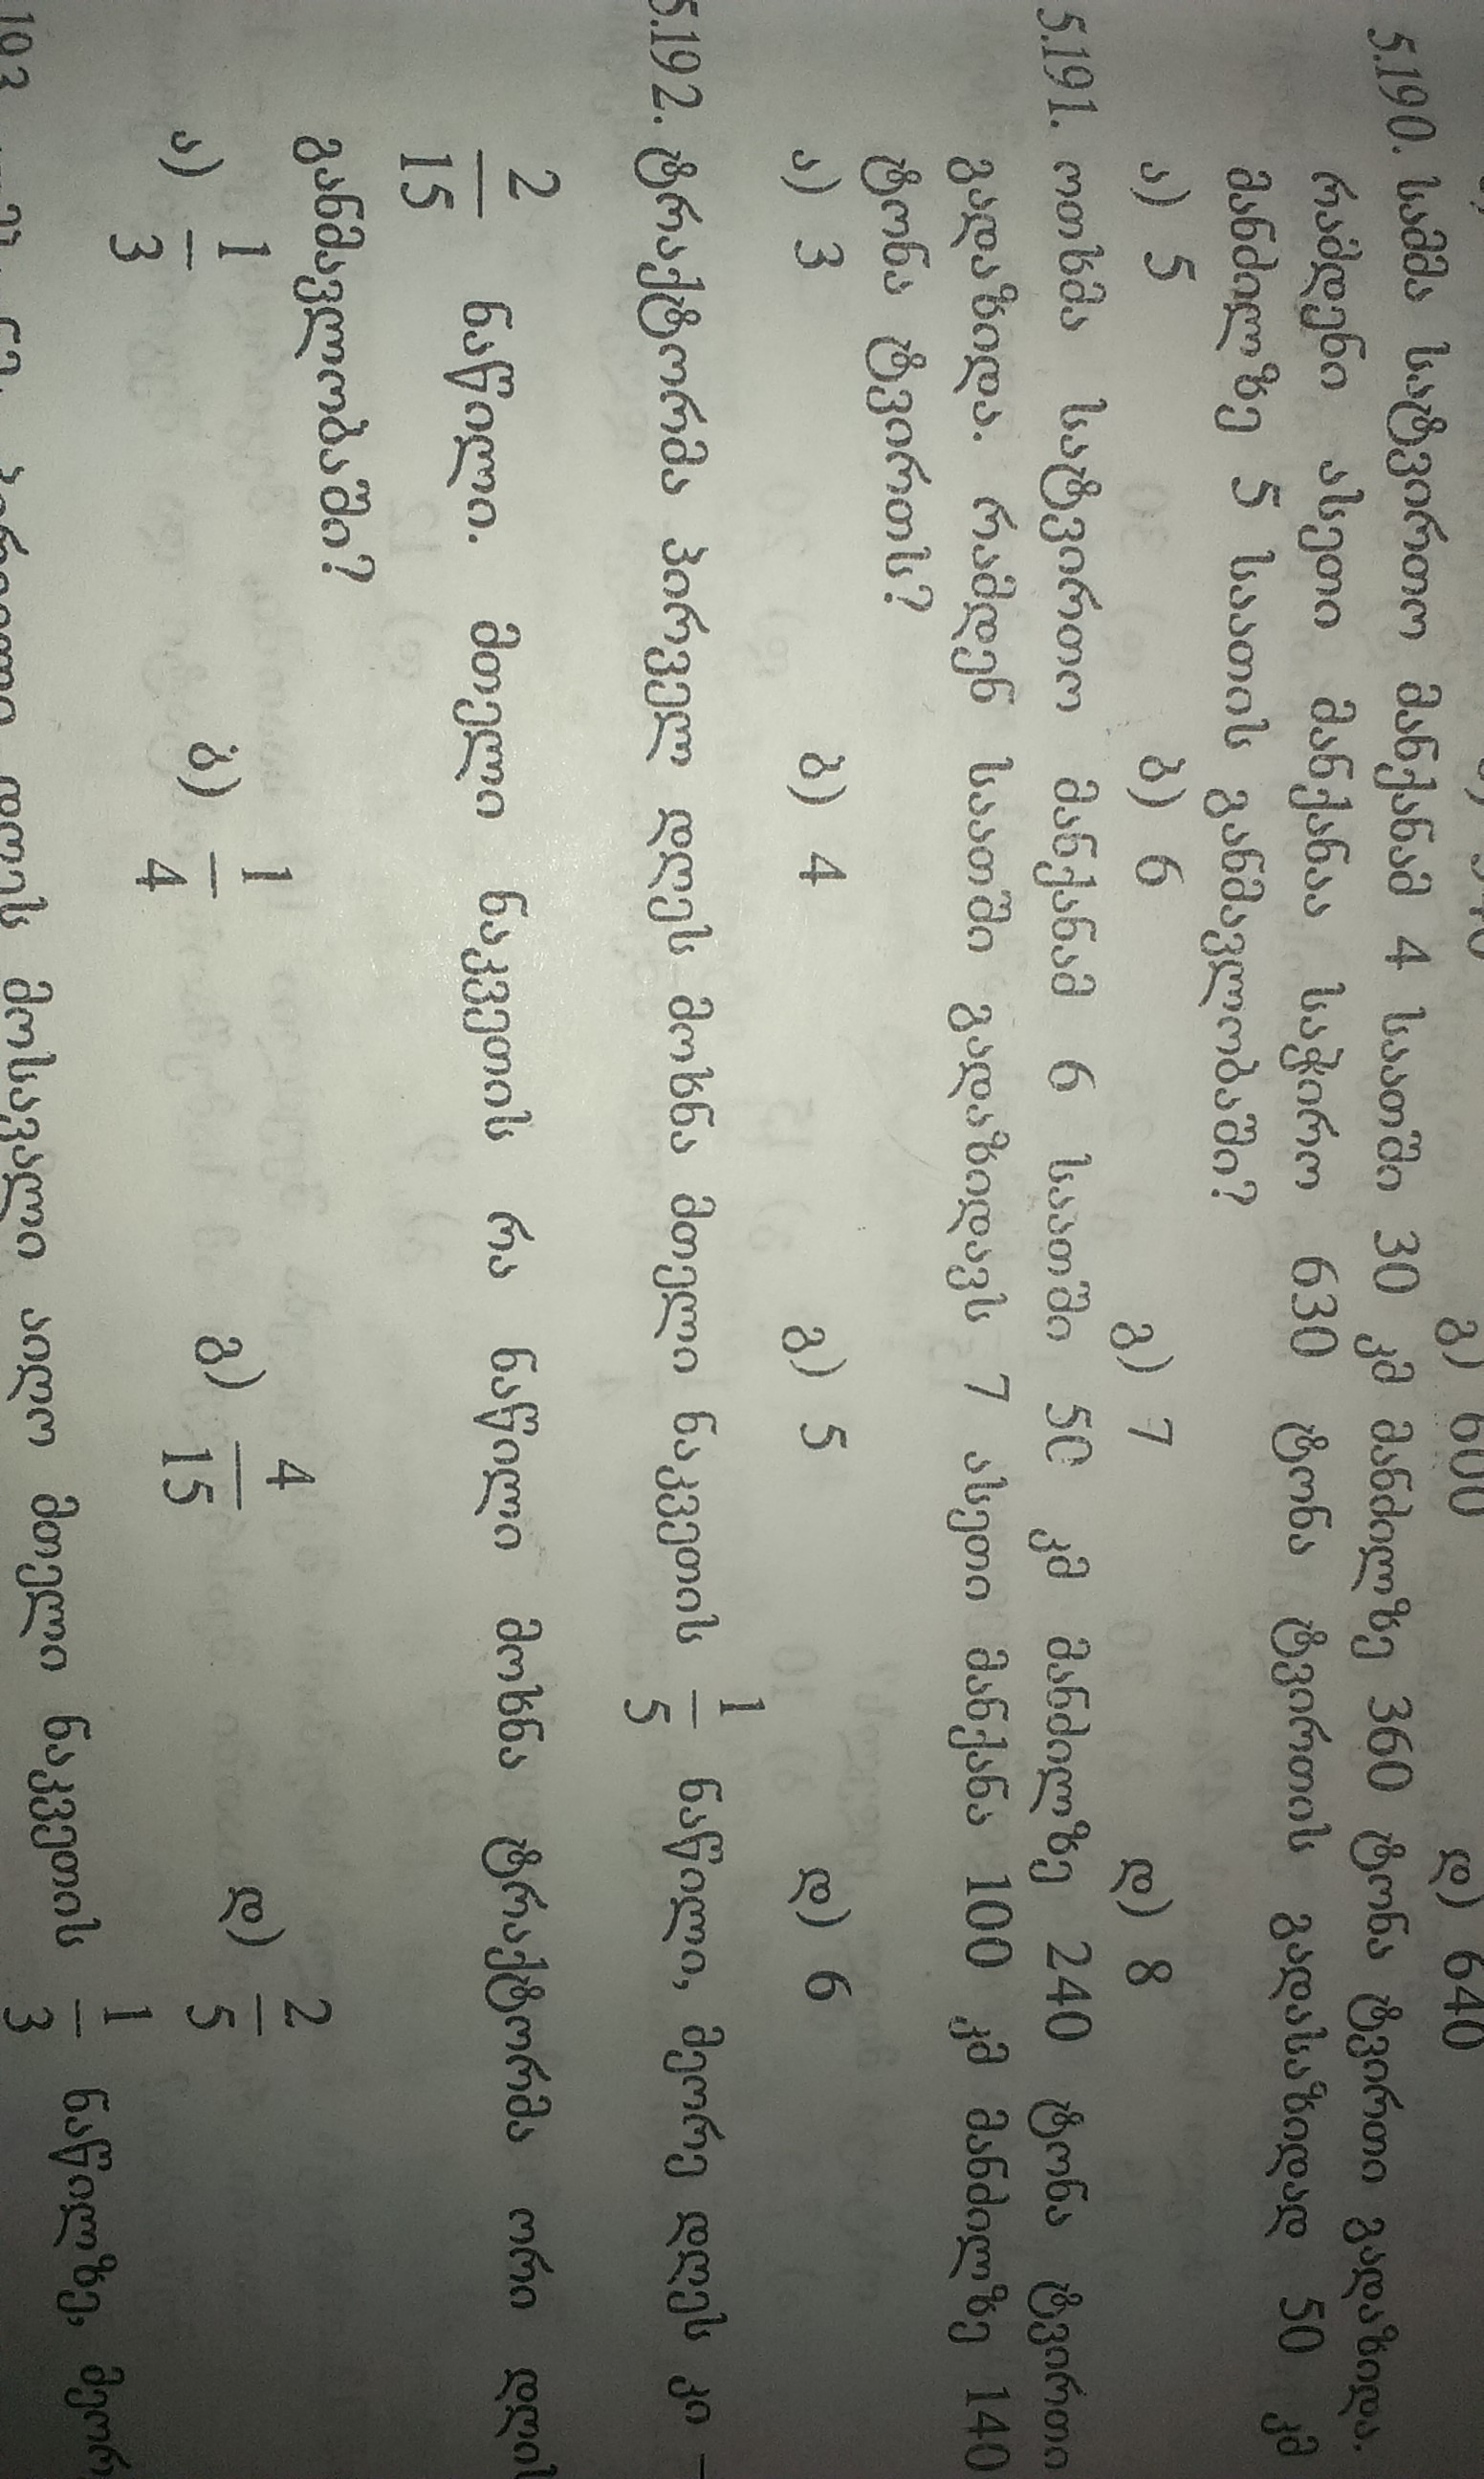 გ) 600 დ) 640
5.190. სამმა სატვირთო მანქანამ 4 საათში 30 კმ მანძილზე 360 ტონა ტვირთი გადაზიდა.
რამდენი ასეთი მანქანაა საჭირო 630 ტონა ტვირთის გადასაზიდად 50 კმ
მანძილზე 5 საათის განმავლობაში?
ა) 5 ბ) 6 გ) 7 დ) 8
5.191. ოთხმა სატვირთო მანქანამ 6 საათში 50 კმ მანძილზე 240 ტონა ტვირთი
გადაზიდა. რამდენ საათში გადაზიდავს 7 ასეთი მანქანა 100 კმ მანძილზე 140
ტონა ტვირთს?
ა) 3 ბ) 4 გ) 5 დ) 6
5.192. ტრაქტორმა პირველ დღეს მოხნა მთელი ნაკვეთის 1/5 ნაწილი, მეორე დღეს კი –
2/15 ნაწილი. მთელი ნაკვეთის რა ნაწილი მოხნა ტრაქტორმა ორი დღის
განმავლობაში?
ა) 1/3 ბ) 1/4 გ) 4/15 დ) 2/5
დღეს მოსავალი აიღო მთელი ნაკვეთის 1/3 ნაწილზე,